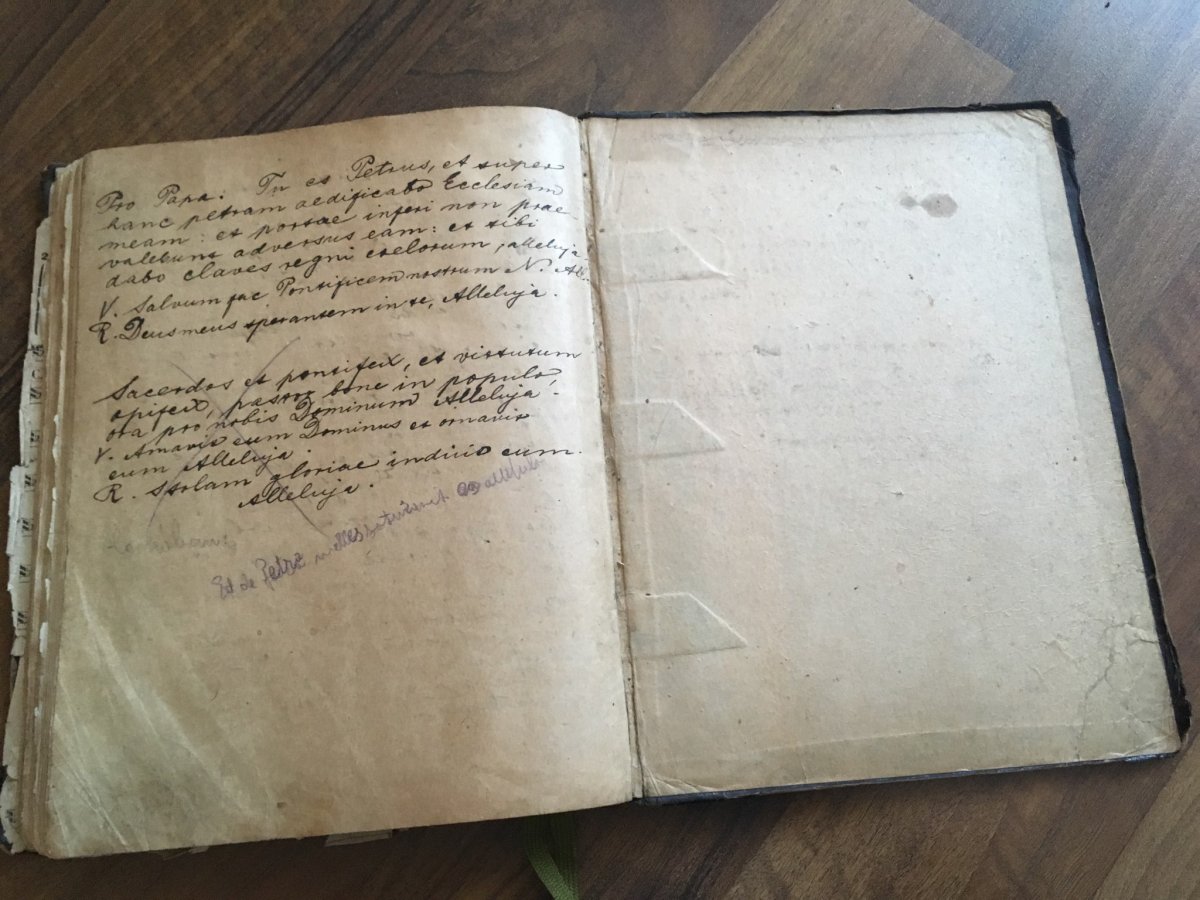 Pro Papa: Tu es Petrus, et super
hanc petram aedificabo Ecclesiam
meam: et portae inferi non prae-
valebunt adversus eam: et tibi
dabo claves regni coelorum, alleluja
V. Salvum fac Pontificem nostrum N. All.
R. Deus meus sperantem in te, Alleluja.
Sacerdos et pontifex, et virtutum
opifex, pastor bone in populo,
ora pro nobis Dominum Alleluja.
V. Amavit eum Dominus et ornavit
eum Alleluja.
R. Stolam gloriae induit eum.
Alleluja.
Et de Petra melle saturavit eos alleluja